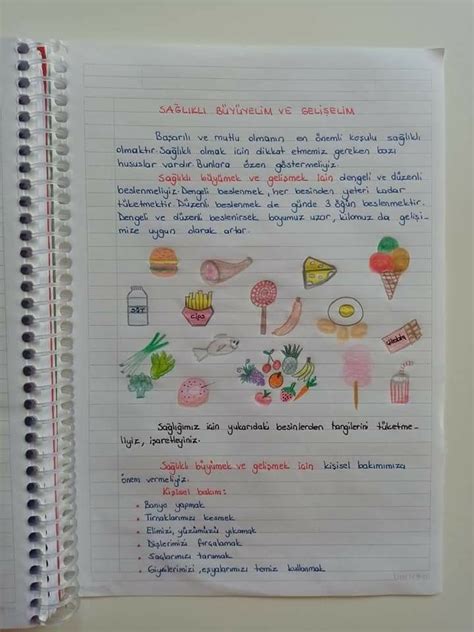 SAĞLIKLI BÜYÜYELİM VE GELİŞELİM
Başarılı ve mutlu olmanın en önemli koşulu sağlıklı
olmaktır. Sağlıklı olmak için dikkat etmemiz gereken bazı
hususlar vardır. Bunlara özen göstermeliyiz.
Sağlıklı büyümek ve gelişmek için dengeli ve düzenli
beslenmeliyiz. Dengeli beslenmek, her besinden yeteri kadar
tüketmektir. Düzenli beslenmek de günde 3 öğün beslenmektir.
Dengeli ve düzenli beslenirsek boyumuz uzar, kilomuz da gelişi-
mize uygun olarak artar.
SÜT
CİPS
Sağlığımız için yukarıdaki besinlerden hangilerini tüketme-
liyiz, işaretleyiniz.
Sağlıklı büyümek ve gelişmek için kişisel bakımımıza
önem vermeliyiz.
Kişisel bakım:
• Banyo yapmak
• Tırnaklarımızı kesmek
• Elimizi, yüzümüzü yıkamak
• Dişlerimizi fırçalamak
• Saçlarımızı taramak
• Giysilerimizi, eşyalarımızı temiz kullanmak